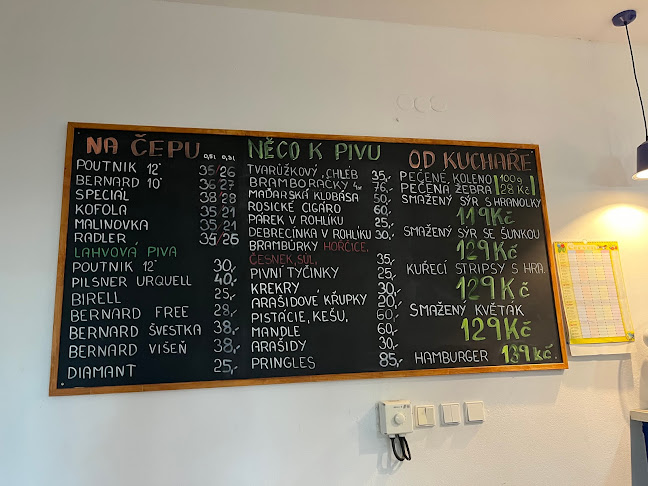 NA ČEPU 0,5l 0,3l
POUTNIK 12° 35/26
BERNARD 10° 36/27
SPECIÁL 38/28
KOFOLA 35/21
MALINOVKA 35/21
RADLER 35/26
LAHVOVÁ PIVA
POUTNIK 12° 30,-
PILSNER URQUELL 40,-
BIRELL 25,-
BERNARD FREE 28,-
BERNARD ŠVESTKA 38,-
BERNARD VIŠEŇ 38,-
DIAMANT 25,-
NĚCO K PIVU
TVARŮŽKOVÝ CHLÉB 35,-
BRAMBORAČKY 4KS 76,-
MAĎARSKÁ KLOBÁSA 50,-
ROSICKÉ CIGÁRO 60,-
PÁREK V ROHLÍKU 25,-
DEBRECÍNKA V ROHLÍKU 30,-
BRAMBŮRKY HOŘČICE,
ČESNEK, SŮL, 35,-
PIVNÍ TYČINKY 25,-
KREKRY 30,-
ARAŠIDOVÉ KŘUPKY 20,-
PISTÁCIE, KEŠU, 60,-
MANDLE 60,-
ARAŠÍDY 30,-
PRINGLES 85,-
OD KUCHAŘE
PEČENÉ KOLENO 100g
PEČENÁ ŽEBRA 28 Kč
SMAŽENÝ SÝR S HRANOLKY
119Kč
SMAŽENÝ SÝR SE ŠUNKOU
129Kč
KUŘECÍ STRIPSY S HRA.
129Kč
SMAŽENÝ KVĚTÁK
129Kč
HAMBURGER 139Kč.